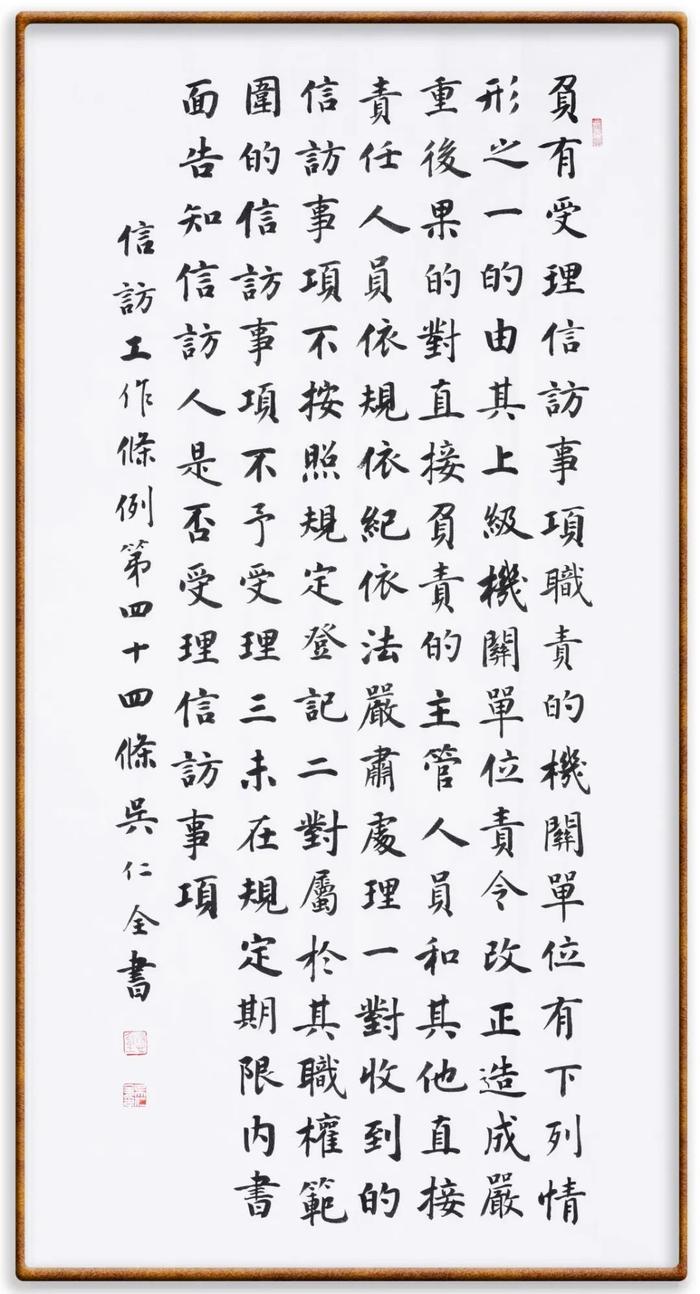 負有受理信訪事項職責的機關單位有下列情
形之一的由其上級機關單位責令改正造成嚴
重後果的對直接負責的主管人員和其他直接
責任人員依規依紀依法嚴肅處理一對收到的
信訪事項不按照規定登記二對屬於其職權範
圍的信訪事項不予受理三未在規定期限內書
面告知信訪人是否受理信訪事項
信訪工作條例第四十四條吳仁全書